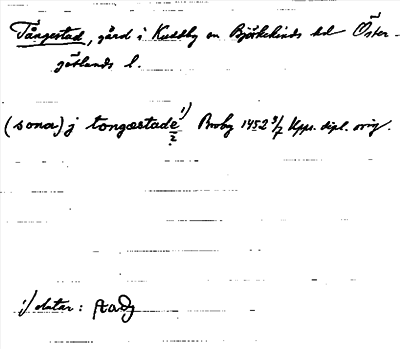 Tångestad, gård i Kuddby sn Björkekinds hd Öster-
götlands l.
(sona) j tongæstade 1) Broby 1452 9/7 Upps. dipl. orig.
2
1) slutar: stadh